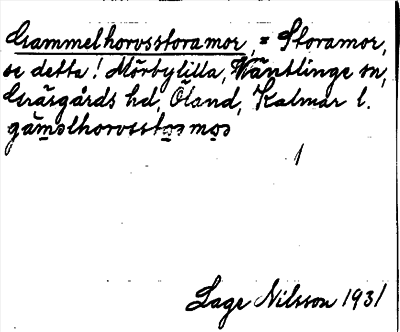 Gammelhorvsstoramor, = Storamor,
se detta! Mörbylilla, Ventlinge sn,
Gräsgårds hd, Öland, Kalmar l.
gàmalhorvsstomos
1
Lage Nilsson 1931